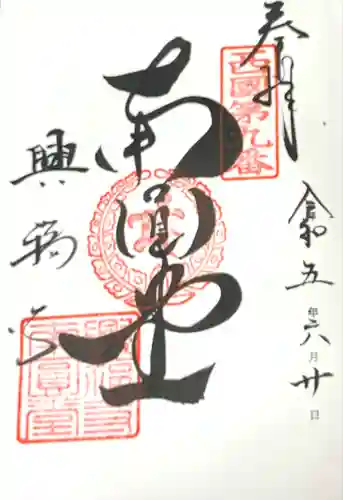 奉拝
西國第九番
令和五年六月廿日
南円堂
興福寺
興福寺
南圓堂